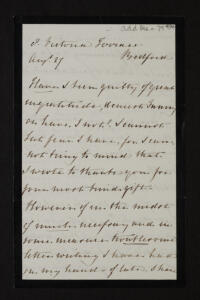 8. Victoria Terrace
Augt. 27 Bedford
Have I been guilty of great
ingratitude, dearest Fanny
or have I not? I cannot
but fear I have, for I can
not bring to mind that
I wrote to thank you for
your most kind gift.
However in the midst
of much necessary and in
some measure troublesome
letter writing I have had
on my hands of late, I have